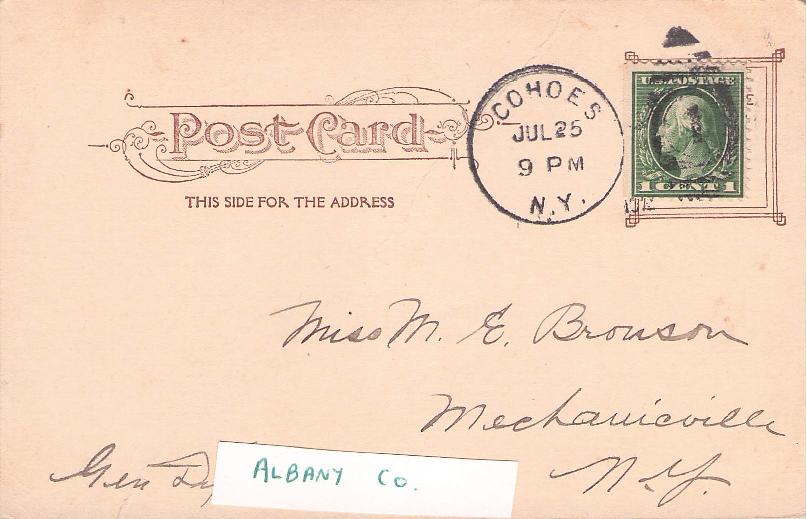 Post Card
THIS SIDE FOR THE ADDRESS
COHOES
JUL 25
9 PM
N.Y.
U.S. POSTAGE
1 CENT 1
Miss M. E. Bronson
Mechanicville
N.Y.
Gen
ALBANY CO.